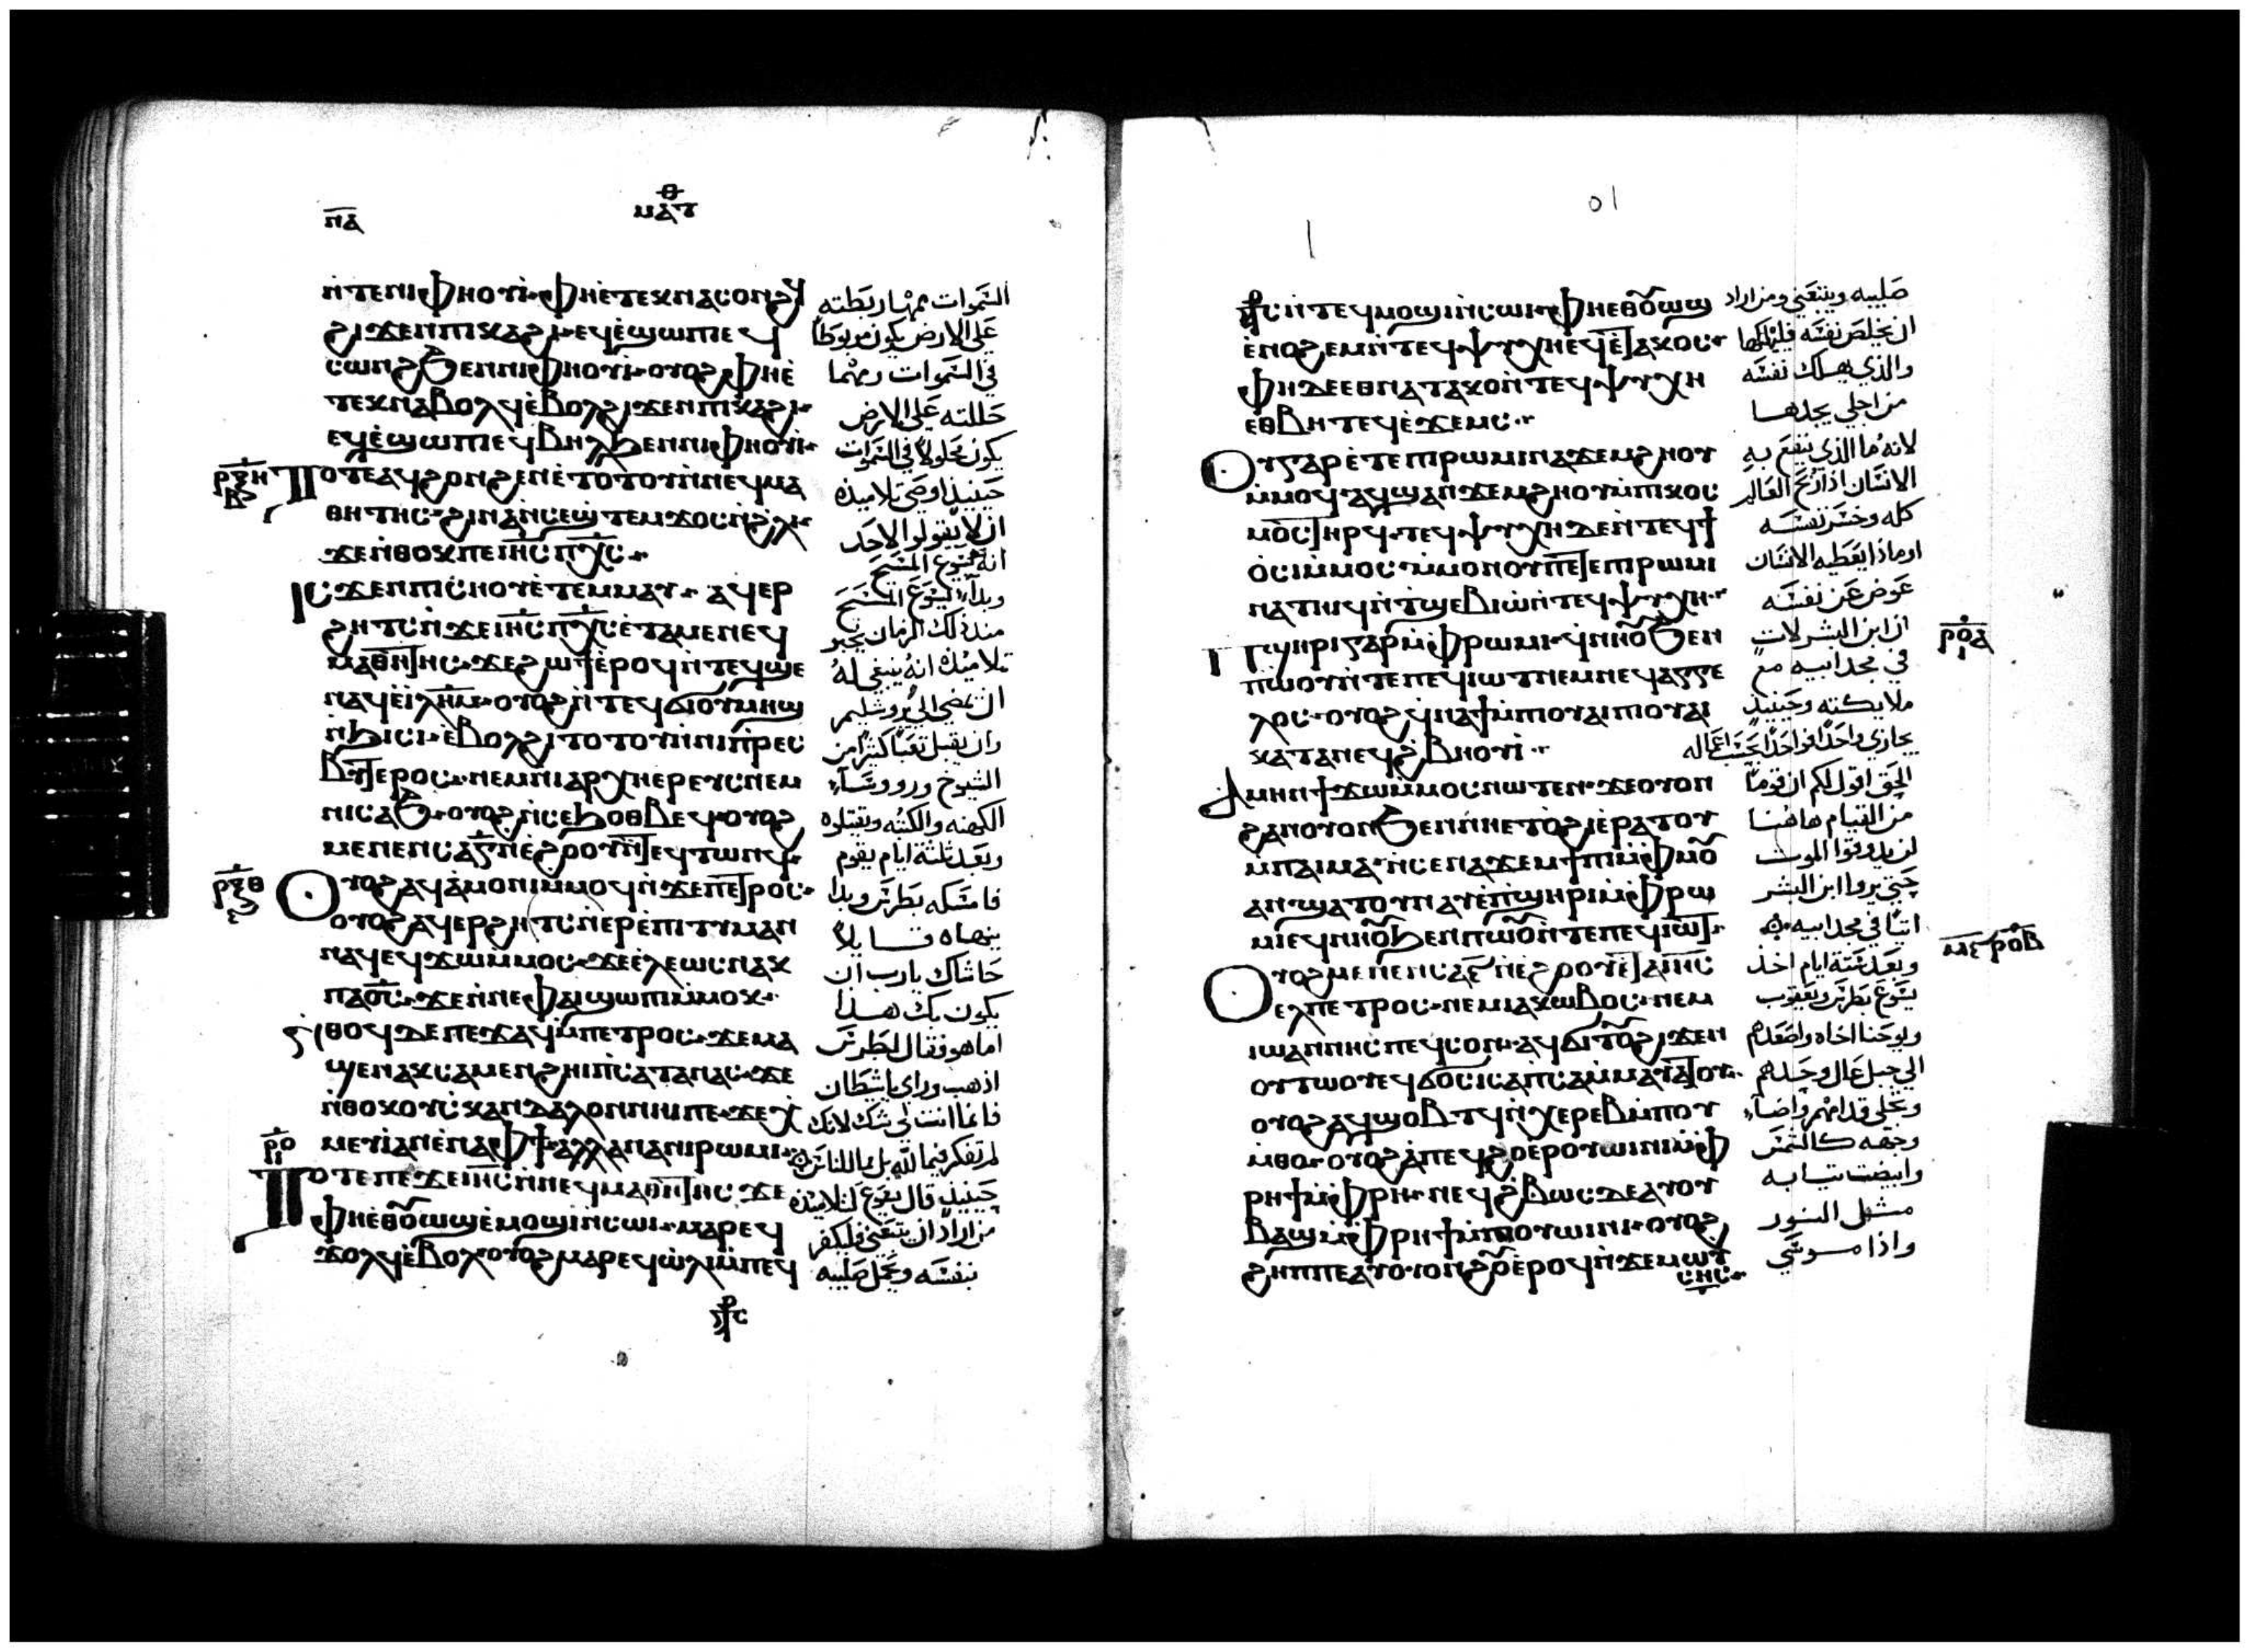 ⲡⲁ
ⲙⲁⲧⲑ
ⲛ̀ⲧⲉⲛⲓⲫⲏⲟⲩⲓ̀ ⲫⲏⲉ̀ⲧⲉⲕⲛⲁⲥⲟⲛϩϥ
ϩⲓϫⲉⲛⲡⲓⲕⲁϩⲓ ⲉϥⲉ̀ϣⲱⲡⲉ ⲉϥ
ⲥⲱⲛϩ ϧⲉⲛⲛⲓⲫⲏⲟⲩⲓ̀ ⲟⲩⲟϩ ⲫⲏⲉ̀
ⲧⲉⲕⲛⲁⲃⲟⲗϥ ⲉ̀ⲃⲟⲗϩⲓϫⲉⲛⲡⲓⲕⲁϩⲓ
ⲉϥⲉ̀ϣⲱⲡⲉ ⲉϥⲃⲏⲗ ϧⲉⲛⲛⲓⲫⲏⲟⲩⲓ̀
ⲣⲝⲏ
ⲧⲟⲧⲉ ⲁϥϩⲟⲛϩⲉⲛ ⲉ̀ⲧⲟⲧⲟⲩ ⲛ̀ⲛⲉϥⲙⲁ
ⲑⲏⲧⲏⲥ ϩⲓⲛⲁ ⲛ̀ⲥⲉϣⲧⲉⲙϫⲟⲥ ⲛ̀ϩⲗⲓ
ϫⲉⲛ̀ⲑⲟⲕ ⲡⲉ ⲓⲏⲥ ⲡⲭⲥ
ⲓⲥϫⲉⲛ ⲡⲓⲥⲏⲟⲩ ⲉ̀ⲧⲉⲙⲙⲁⲩ ⲁϥⲉⲣ
ϩⲏⲧⲥ ⲛ̀ϫⲉ ⲓⲏⲥ ⲡⲭⲥ ⲉ̀ⲧⲁⲙⲉ ⲛⲉϥ
ⲙⲁⲑⲏⲧⲏⲥ ϫⲉ ϩⲱϯ ⲉ̀ⲣⲟϥ ⲛ̀ⲧⲉϥϣⲉ
ⲛⲁϥ ⲉ̀ⲓⲗⲏⲙ ⲟⲩⲟϩ ⲛ̀ⲧⲉϥϭⲓ ⲟⲩⲙⲏϣ
ⲛ̀ϧⲓⲥⲓ ⲉ̀ⲃⲟⲗϩⲓⲧⲟⲧⲟⲩ ⲛ̀ⲛⲓⲡⲣⲉⲥ
ⲃⲩⲧⲉⲣⲟⲥ ⲛⲉⲙ ⲛⲓⲁⲣⲭⲏⲉⲣⲉⲩⲥ ⲛⲉⲙ
ⲛⲓⲥⲁϧ ⲟⲩⲟϩ ⲛ̀ⲥⲉϧⲟⲑⲃⲉϥ ⲟⲩⲟϩ
ⲙⲉⲛⲉⲛⲥⲁ ⲅ̅ ⲛ̀ⲉ̀ϩⲟⲟⲩ ⲛ̀ⲧⲉϥⲧⲱⲛϥ
ⲣⲝⲑ
ⲟⲩⲟϩ ⲁϥⲁ̀ⲙⲟⲛⲓ ⲙ̀ⲙⲟϥ ⲛ̀ϫⲉ ⲡⲉⲧⲣⲟⲥ
ⲟⲩⲟϩ ⲁϥⲉⲣϩⲏⲧⲥ ⲛ̀ⲉⲣⲉ̀ⲡⲓⲧⲩⲙⲁⲛ
ⲛⲁϥ ⲉϥϫⲱ ⲙ̀ⲙⲟⲥ ϫⲉ ⲉ̀ⲗⲉⲱⲥ ⲛⲁⲕ
ⲡⲁⲟ̅ⲥ̅ ϫⲉ ⲛ̀ⲛⲉ ⲫⲁⲓ ϣⲱⲡⲓ ⲙ̀ⲙⲟⲕ
ⲛ̀ⲑⲟϥ ⲇⲉ ⲡⲉϫⲁϥ ⲙ̀ⲡⲉⲧⲣⲟⲥ ϫⲉ ⲙⲁ
ϣⲉⲛⲁⲕ ⲥⲁⲙⲉⲛϩⲏⲓ ⲡⲥⲁⲧⲁⲛⲁⲥ ϫⲉ
ⲛ̀ⲑⲟⲕ ⲟⲩⲥⲕⲁⲛⲇⲁⲗⲟⲛ ⲛⲏⲓ ⲡⲉ ϫⲉ ⲭ
ⲙⲉⲩⲓ̀ ⲁⲛ ⲉ̀ⲛⲁⲫϯ ⲁⲗⲗⲁ ⲛⲁⲛⲓⲣⲱⲙⲓ
ⲣⲟ
ⲧⲟⲧⲉ ⲡⲉϫⲉ ⲓⲏⲥ ⲛ̀ⲛⲉϥⲙⲁⲑⲏⲧⲏⲥ ϫⲉ
ⲫⲏⲉⲑⲟⲩⲱϣ ⲉ̀ⲙⲟϣⲓ ⲛ̀ⲥⲱⲓ ⲙⲁⲣⲉϥ
ϫⲟⲗϥ ⲉ̀ⲃⲟⲗ ⲟⲩⲟϩ ⲙⲁⲣⲉϥⲱ̀ⲗⲓ ⲙ̀ⲡⲉϥ
⳨ⲥ
السموات ومهما ربطته
على الارض يكون مربوطا
في السموات ومهما
حللته على الارض
يكون محلولا في السموات
حينيذ اوصى تلاميذه
ان لا يقولوا لاحد
انه يسوع المسيح
وبدا يسوع المسيح
منذ ذلك الزمان يخبر
تلاميذه انه ينبغي له
ان يمضي الى يروشليم
وان يقبل تعبا كثيرا من
الشيوخ ورووسا
الكهنه والكتبه ويقتلوه
وبعد ثلثة ايام يقوم
فامسكه بطرس وبدا
ينهاه قايلا
حاشاك يارب ان
يكون بك هذا
اما هو فقال لبطرس
اذهب وراي ياشيطان
فانما انت لي شك لانك
لم تفكر فيما لله بل بما للناس
حينيذ قال يسوع لتلاميذه
من اراد ان يتبعني فليكفر
بنفسه ويحمل صليبه
⳨ⲥ ⲛ̀ⲧⲉϥⲙⲟϣⲓ ⲛ̀ⲥⲱⲓ ⲫⲏⲉⲑⲟⲩⲱϣ
ⲉ̀ⲛⲟϩⲉⲙ ⲛ̀ⲧⲉϥⲯⲩⲭⲏ ⲉϥⲉ̀ⲧⲁⲕⲟⲥ
ⲫⲏ ⲇⲉ ⲉⲑⲛⲁⲧⲁⲕⲟ ⲛ̀ⲧⲉϥⲯⲩⲭⲏ
ⲉⲑⲃⲏⲧ ⲉϥⲉ̀ϫⲉⲙⲥ
ⲟⲩ ⲅⲁⲣ ⲉ̀ⲧⲉ ⲡⲣⲱⲙⲓ ⲛⲁϫⲉⲙϩⲏⲟⲩ
ⲙ̀ⲙⲟϥ ⲁϥϣⲁⲛϫⲉⲙϩⲏⲟⲩ ⲙ̀ⲡⲓⲕⲟⲥ
ⲙⲟⲥ ⲧⲏⲣϥ ⲧⲉϥⲯⲩⲭⲏ ⲇⲉ ⲛ̀ⲧⲉϥϯ
ⲟ̀ⲥⲓ ⲙ̀ⲙⲟⲥ ⲙ̀ⲙⲟⲛ ⲟⲩ ⲡⲉⲧⲉ ⲡⲣⲱⲙⲓ
ⲛⲁⲧⲏⲓϥ ⲛ̀ⲧϣⲉⲃⲓⲱ̀ ⲛ̀ⲧⲉϥⲯⲩⲭⲏ
ⲣⲟⲁ
ⲡϣⲏⲣⲓ ⲅⲁⲣ ⲙ̀ⲫⲣⲱⲙⲓ ϥⲛⲏⲟⲩ ϧⲉⲛ
ⲡⲱⲟⲩ ⲛ̀ⲧⲉ ⲡⲉϥⲓⲱⲧ ⲛⲉⲙ ⲛⲉϥⲁⲅⲅⲉ
ⲗⲟⲥ ⲟⲩⲟϩ ϥⲛⲁϯ ⲙ̀ⲡⲟⲩⲁⲓ ⲡⲟⲩⲁⲓ
ⲕⲁⲧⲁ ⲛⲉϥϩ̀ⲃⲏⲟⲩⲓ̀
ⲁⲙⲏⲛ ϯϫⲱ ⲙ̀ⲙⲟⲥ ⲛⲱⲧⲉⲛ ϫⲉ ⲟⲩⲟⲛ
ϩⲁⲛⲟⲩⲟⲛ ϧⲉⲛ ⲛⲏⲉⲧⲟ̀ϩⲓ ⲉ̀ⲣⲁⲧⲟⲩ
ⲙ̀ⲡⲁⲓⲙⲁ ⲛ̀ⲥⲉⲛⲁϫⲉⲙϯⲡⲓ ⲙ̀ⲫⲙⲟⲩ
ⲁⲛ ϣⲁⲧⲟⲩⲛⲁⲩ ⲉ̀ⲡϣⲏⲣⲓ ⲙ̀ⲫⲣⲱ
ⲙⲓ ⲉϥⲛⲏⲟⲩ ϧⲉⲛ ⲡⲱⲟⲩ ⲛ̀ⲧⲉ ⲡⲉϥⲓⲱⲧ
ⲣⲟⲃ
ⲟⲩⲟϩ ⲙⲉⲛⲉⲛⲥⲁ ⲋ̅ ⲛ̀ⲉ̀ϩⲟⲟⲩ ⲁ̀ ⲓⲏⲥ
ⲉⲗ ⲡⲉⲧⲣⲟⲥ ⲛⲉⲙ ⲓⲁⲕⲱⲃⲟⲥ ⲛⲉⲙ
ⲓⲱⲁⲛⲛⲏⲥ ⲡⲉϥⲥⲟⲛ ⲁϥϭⲓⲧⲟⲩ ϩⲓϫⲉⲛ
ⲟⲩⲧⲱⲟⲩ ⲉϥϭⲟⲥⲓ ⲥⲁⲡⲥⲁ ⲙ̀ⲙⲁⲩⲁⲧⲟⲩ
ⲟⲩⲟϩ ⲁϥϣⲟⲃⲧϥ ⲛ̀ⲭⲉⲣⲉⲃ ⲙ̀ⲡⲟⲩ
ⲙ̀ⲑⲟ ⲟⲩⲟϩ ⲁ̀ ⲡⲉϥϩⲟ ⲉⲣⲟⲩⲱⲓⲛⲓ ⲙ̀ⲫ
ⲣⲏϯ ⲙ̀ⲫⲣⲏ ⲛⲉϥϩ̀ⲃⲱⲥ ⲇⲉ ⲁⲩⲟⲩ
ⲃⲁϣ ⲙ̀ⲫⲣⲏϯ ⲙ̀ⲡⲓⲟⲩⲱⲓⲛⲓ ⲟⲩⲟϩ
ϩⲏⲡⲡⲉ ⲁⲩⲟⲩⲟⲛϩⲟⲩ ⲉ̀ⲣⲟϥ ⲛ̀ϫⲉ ⲙⲱⲩ
ⲥⲏⲥ
صليبه ويتبعني ومن اراد
ان يخلص نفسه فليهلكها
والذي يهلك نفسه
من اجلي يجدها
لانه ما الذي ينتفع به
الانسان اذا ربح العالم
كله وخسر نفسه
او ماذا يعطيه الانسان
عوض عن نفسه
ان ابن البشر لات
في مجد ابيه مع
ملايكته وحينيذ
يجازي واحدا فواحدا بحسب اعماله
الحق اقول لكم ان قوما
من القيام هاهنا
لن يذوقوا الموت
حتى يروا ابن البشر
اتيا في مجد ابيه
وبعد ستة ايام اخذ
يسوع بطرس ويعقوب
ويوحنا اخاه واصعدهم
الى جبل عال وحدهم
وتجلى قدامهم واضا
وجهه كالشمس
وابيضت ثيابه
مثل النور
واذا موسى